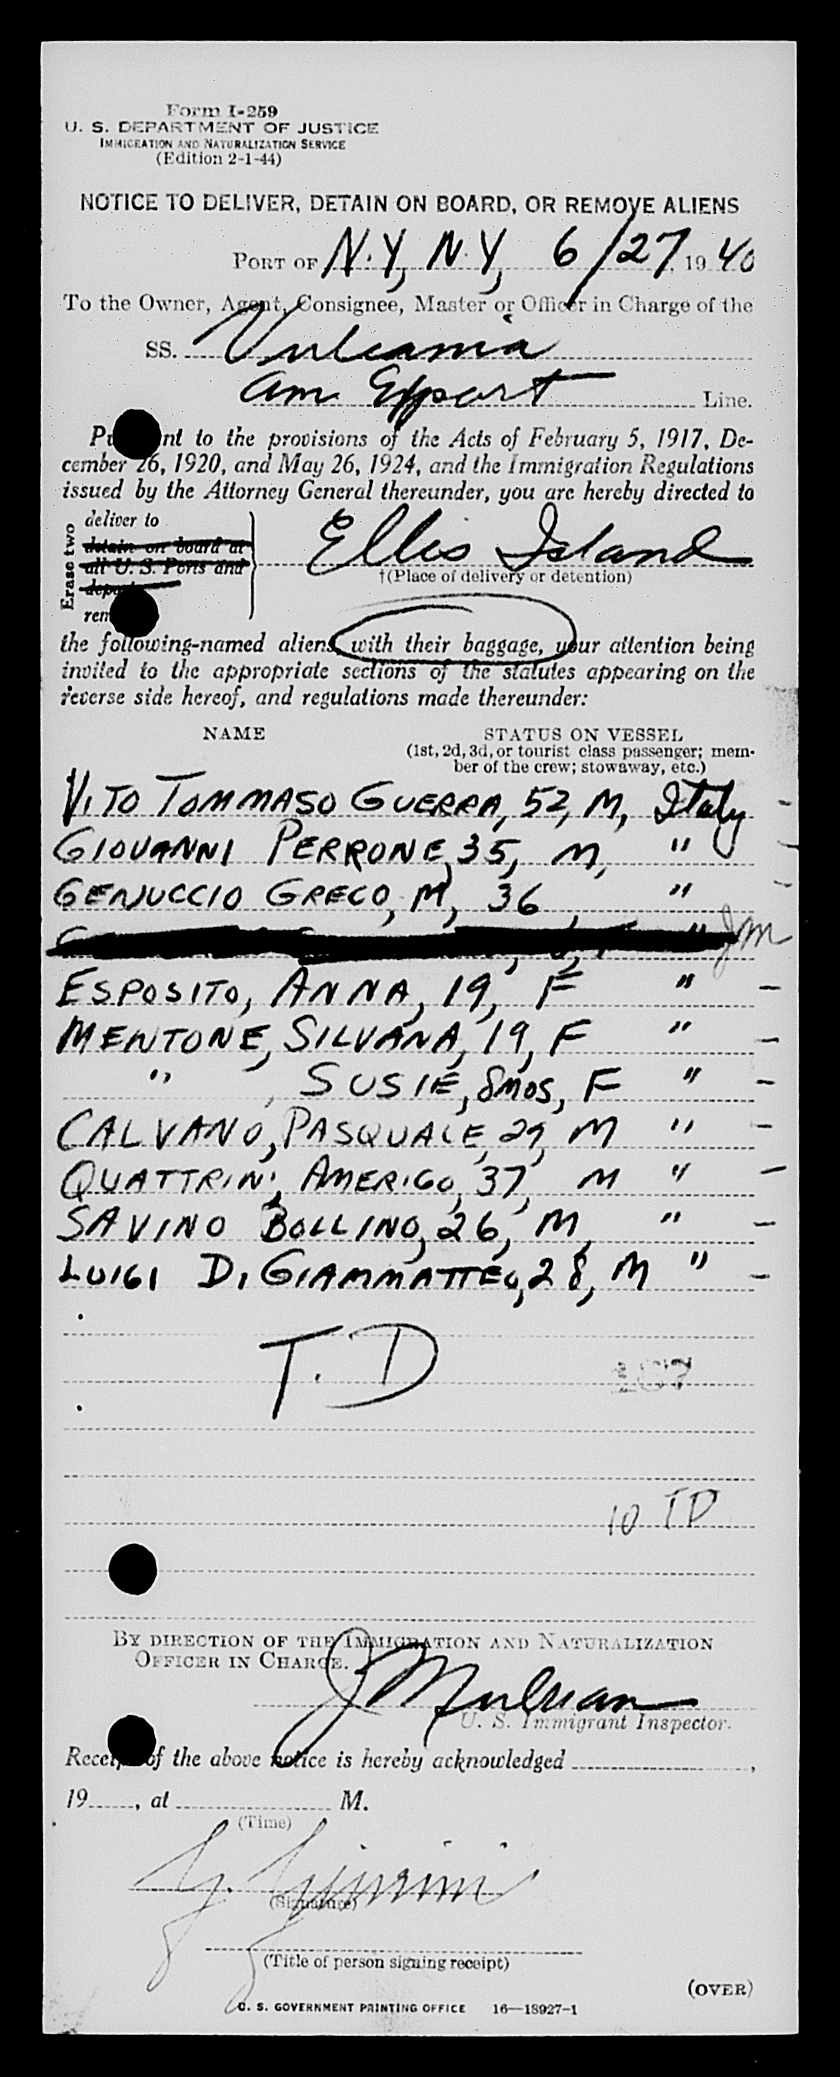 Form I-259
U. S. DEPARTMENT OF JUSTICE
IMMIGRATION AND NATURALIZATION SERVICE
(Edition 2-1-44)
NOTICE TO DELIVER, DETAIN ON BOARD, OR REMOVE ALIENS
PORT OF N.Y, N.Y, 6/27, 1940
To the Owner, Agent, Consignee, Master or Officer in Charge of the
SS. Vulcania
Am Export Line.
nt to the provisions of the Acts of February 5, 1917, De-
cember 26, 1920, and May 26, 1924, and the Immigration Regulations
issued by the Attorney General thereunder, you are hereby directed to
Erase two
deliver to
detain on board at
all U. S. Ports and
rem
Ellis Island
†(Place of delivery or detention)
the following-named aliens, with their baggage, your attention being
invited to the appropriate sections of the statutes appearing on the
reverse side hereof, and regulations made thereunder:
NAME STATUS ON VESSEL
(1st, 2d, 3d, or tourist class passenger; mem-
ber of the crew; stowaway, etc.)
VITO TOMMASO GUERRA, 52, M, Italy -
GIOVANNI PERRONE, 35, M, " -
GENUCCIO GRECO, M, 36, " -
" JM
ESPOSITO, ANNA, 19, F " -
MENTONE, SILVANA, 19, F " -
" , SUSIE, 8mos, F " -
CALVANO, PASQUALE, 29, M " -
QUATTRINI, AMERIGO, 37, M " -
SAVINO BOLLINO, 26, M, " -
LUIGI DI GIAMMATTEO, 28, M " -
T. D
187
10 TD
BY DIRECTION OF THE IMMIGRATION AND NATURALIZATION
OFFICER IN CHARGE.
J Mulman
U. S. Immigrant Inspector.
Receipt of the above notice is hereby acknowledged ,
19 , at M.
(Time)
(Signature)
(Title of person signing receipt)
(OVER)
U. S. GOVERNMENT PRINTING OFFICE 16—18927-1